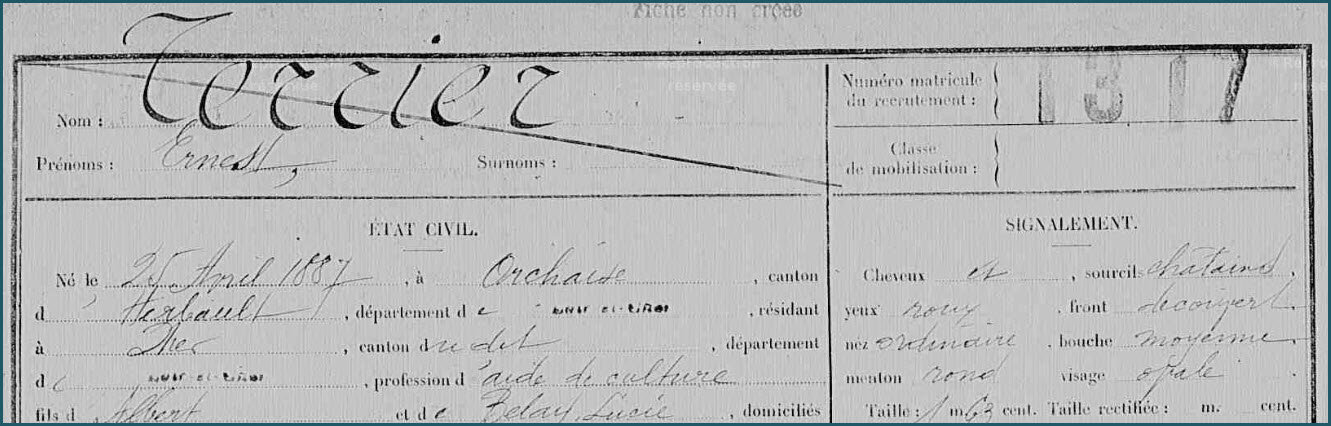 Fiche non crôée
Nom : Terrier
Prénoms : Ernest, Surnoms :
Numéro matricule du recrutement : 1317
Classe de mobilisation :
ÉTAT CIVIL.
Né le 25 Avril 1887, à Orchaise, canton
d'Herbault, département de Loir-et-Cher, résidant
à , canton du dit, département
de Loir-et-Cher, profession d'aide de culture
fils d'Albert et de Lucie, domiciliés
SIGNALEMENT.
Cheveux et , sourcils chatains,
yeux roux , front decouvert
nez ordinaire , bouche moyenne
menton rond visage ovale
Taille : 1 m. 63 cent. Taille rectifiée : m. cent.